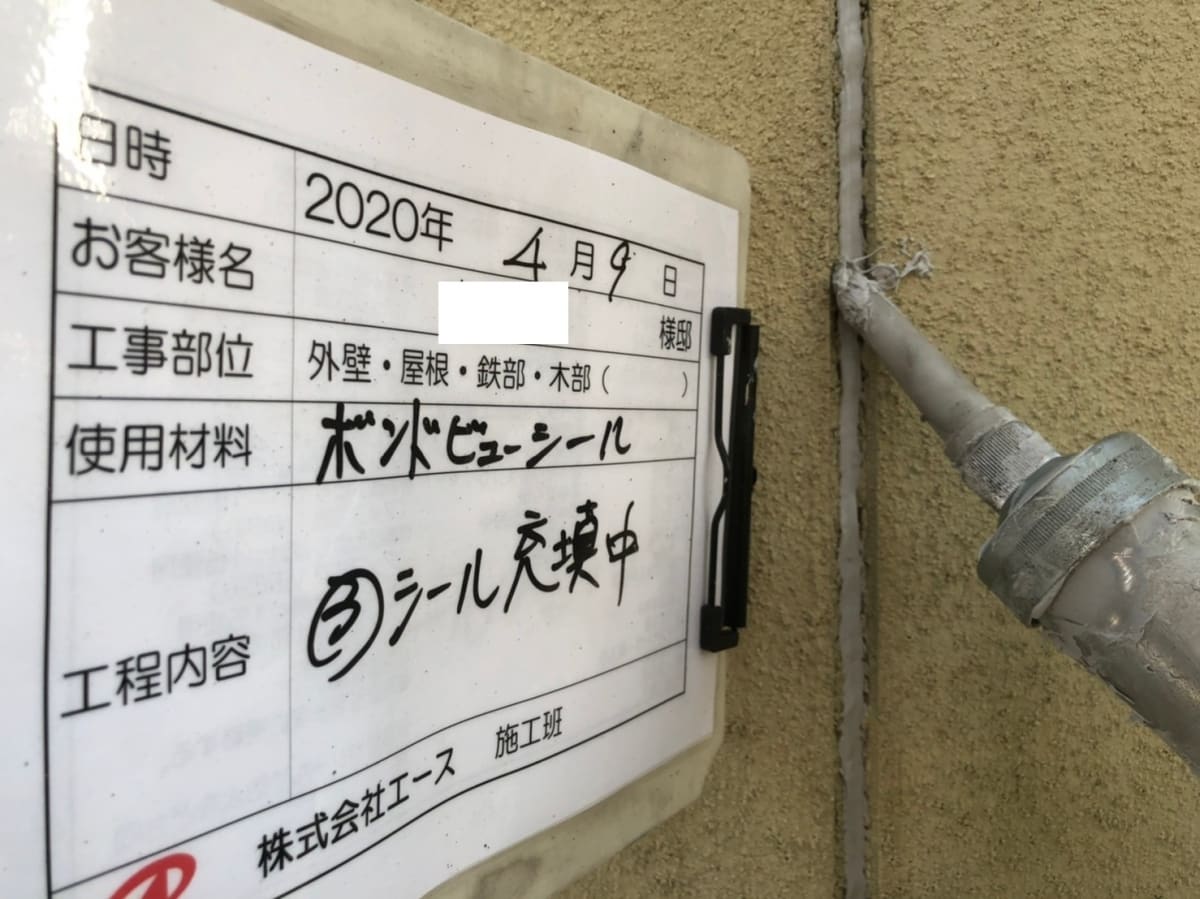 日時 2020年 4月9日
お客様名 様邸
工事部位 外壁・屋根・鉄部・木部( )
使用材料 ボンドビューシール
工程内容 ③シール充填中
株式会社エース 施工班